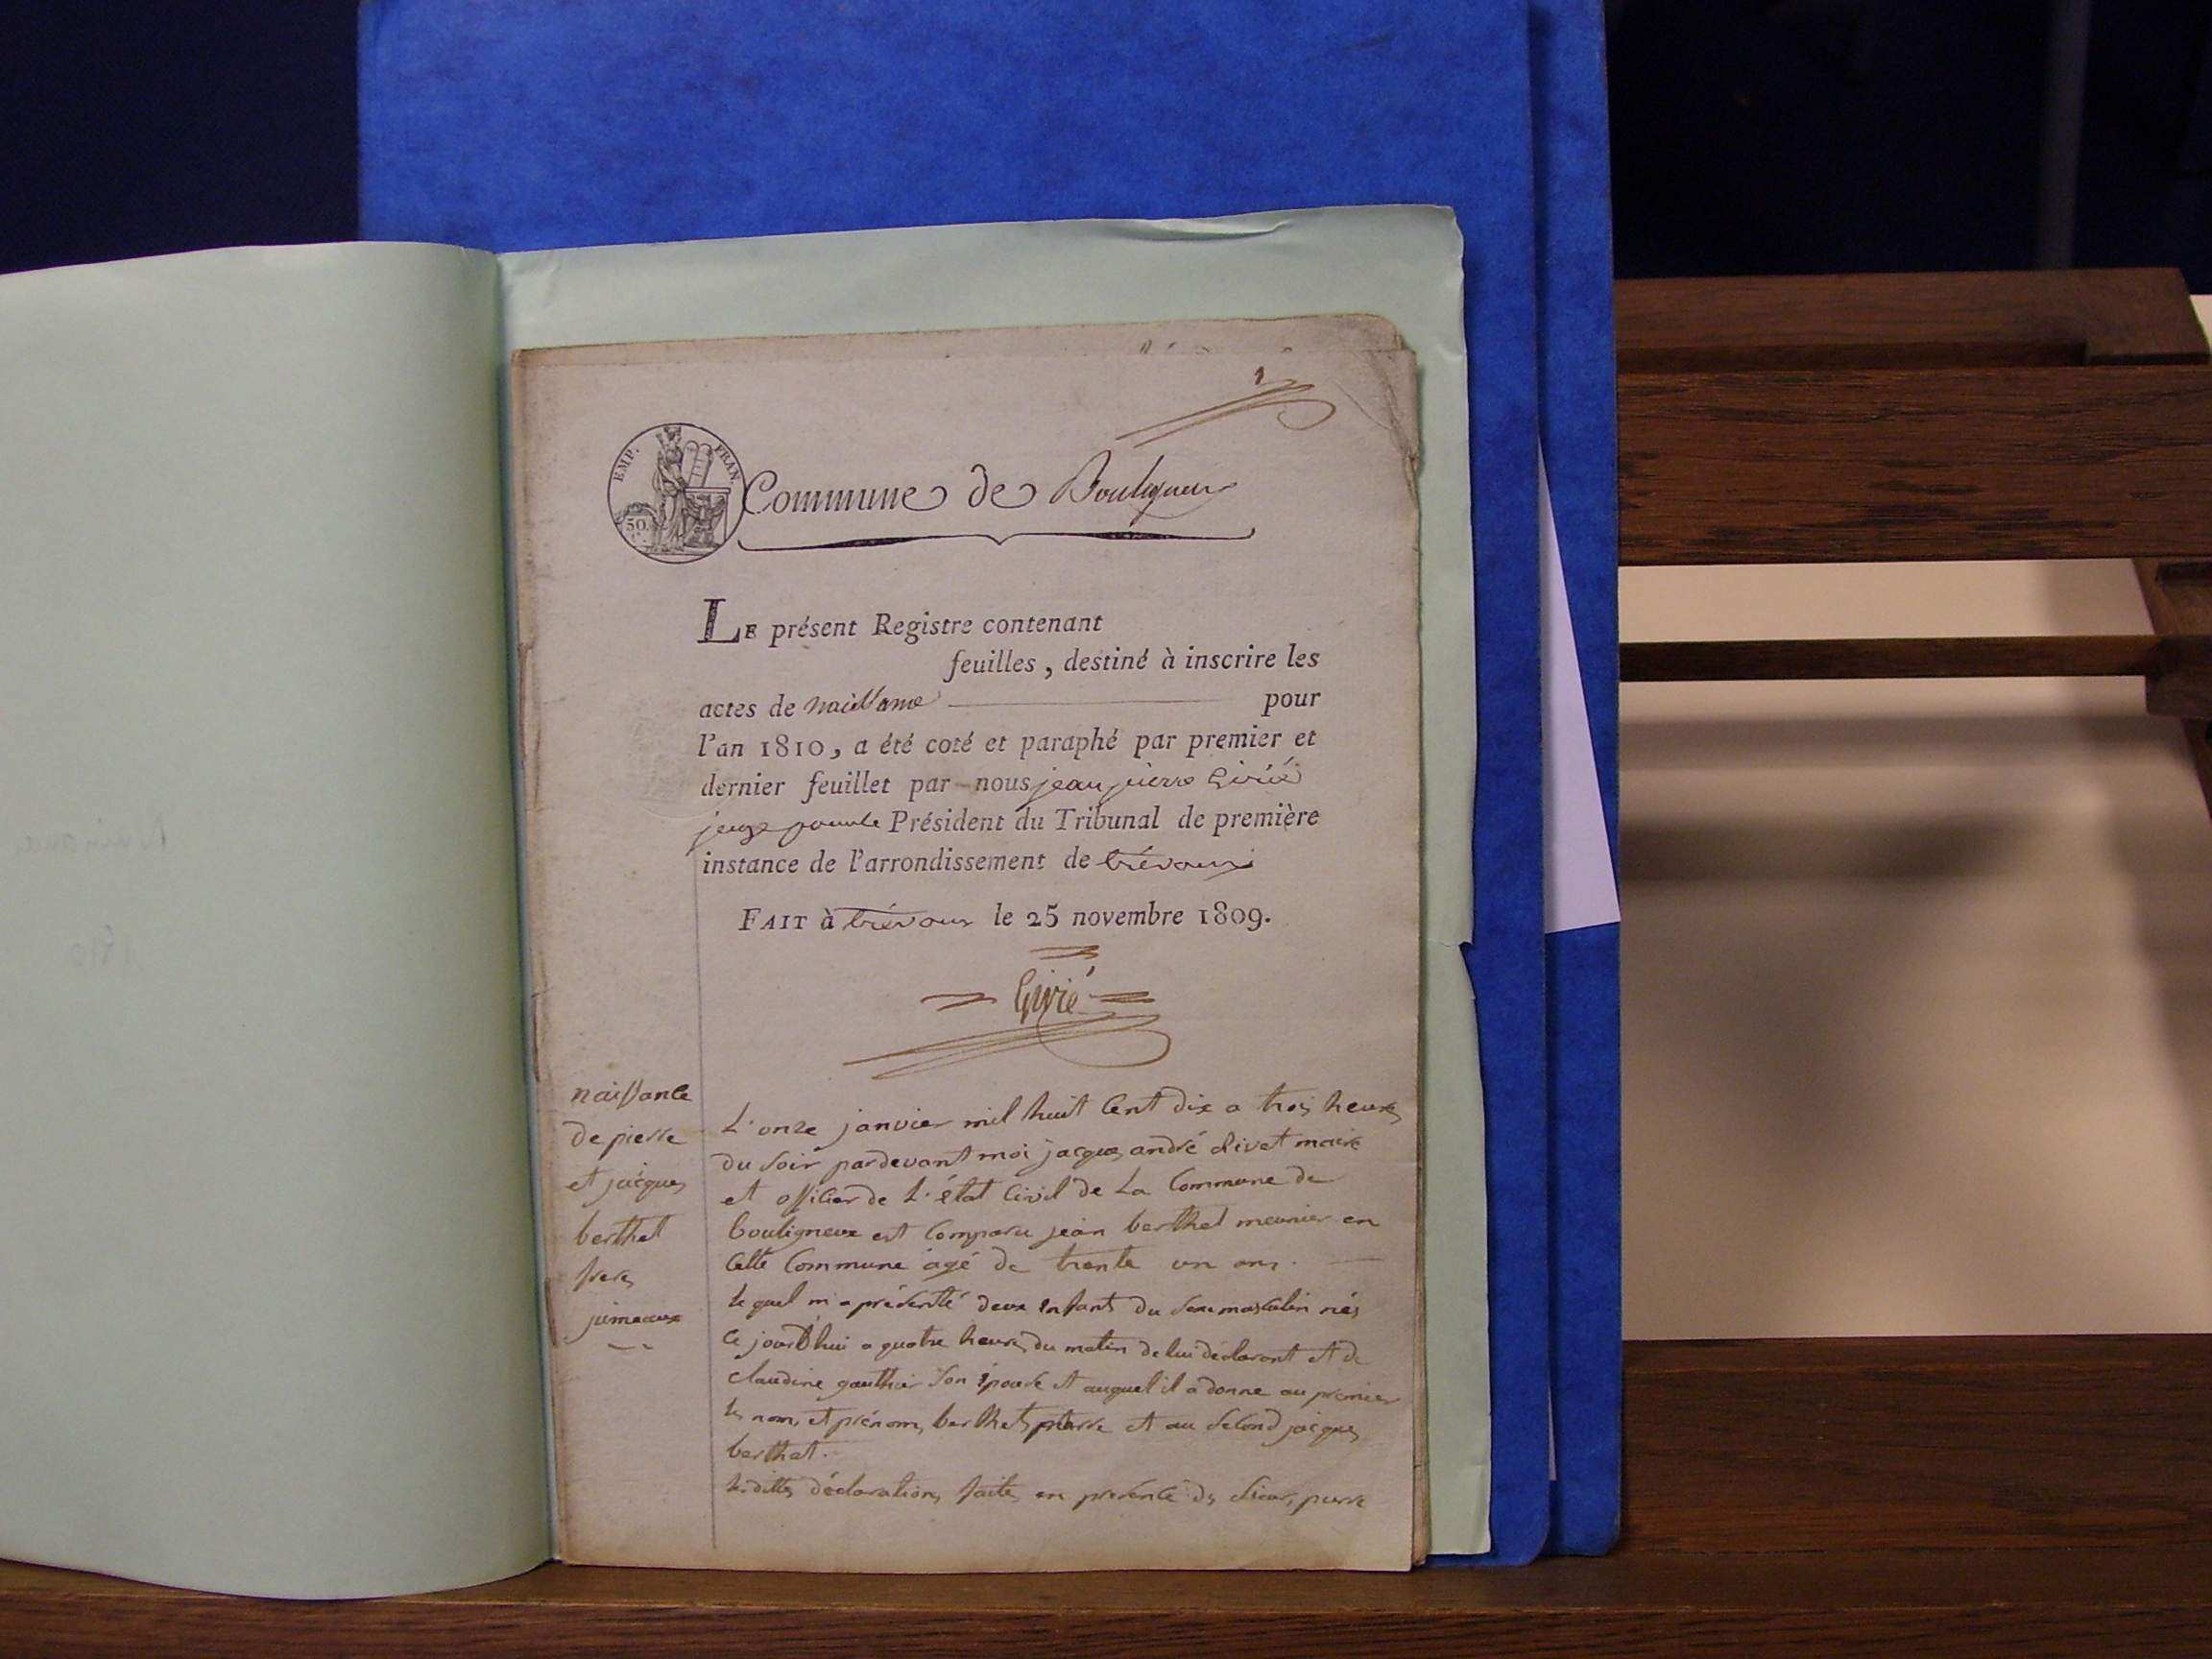 1
EMP. FRAN.
50.
Commune de Bouligneux
LE présent Registre contenant
feuilles, destiné à inscrire les
actes de naissance pour
l'an 1810, a été coté et paraphé par premier et
dernier feuillet par nous jean pierre Givié
juge pour le Président du Tribunal de première
instance de l'arrondissement de trévoux
FAIT à trévoux le 25 novembre 1809.
Givié
naissance
de pierre
et jacques
berthet
freres
jumeaux
L'onze janvier mil huit Cent dix a trois heures
du soir pardevant moi jacques andré olivet maire
et officier de L'état Civil de La Commune de
bouligneux est Comparu jean berthet meunier en
Cette Commune âgé de trente un ans.
le quel m'a présenté deux enfants du sexe masculin nés
Ce jourd'hui a quatre heures du matin de lui déclarant et de
Claudine gauthier son épouse et auquel il a donné au premier
les noms et prénoms berthet pierre et au second jacques
berthet.
lesdittes déclarations faites en présence des sieurs pierre